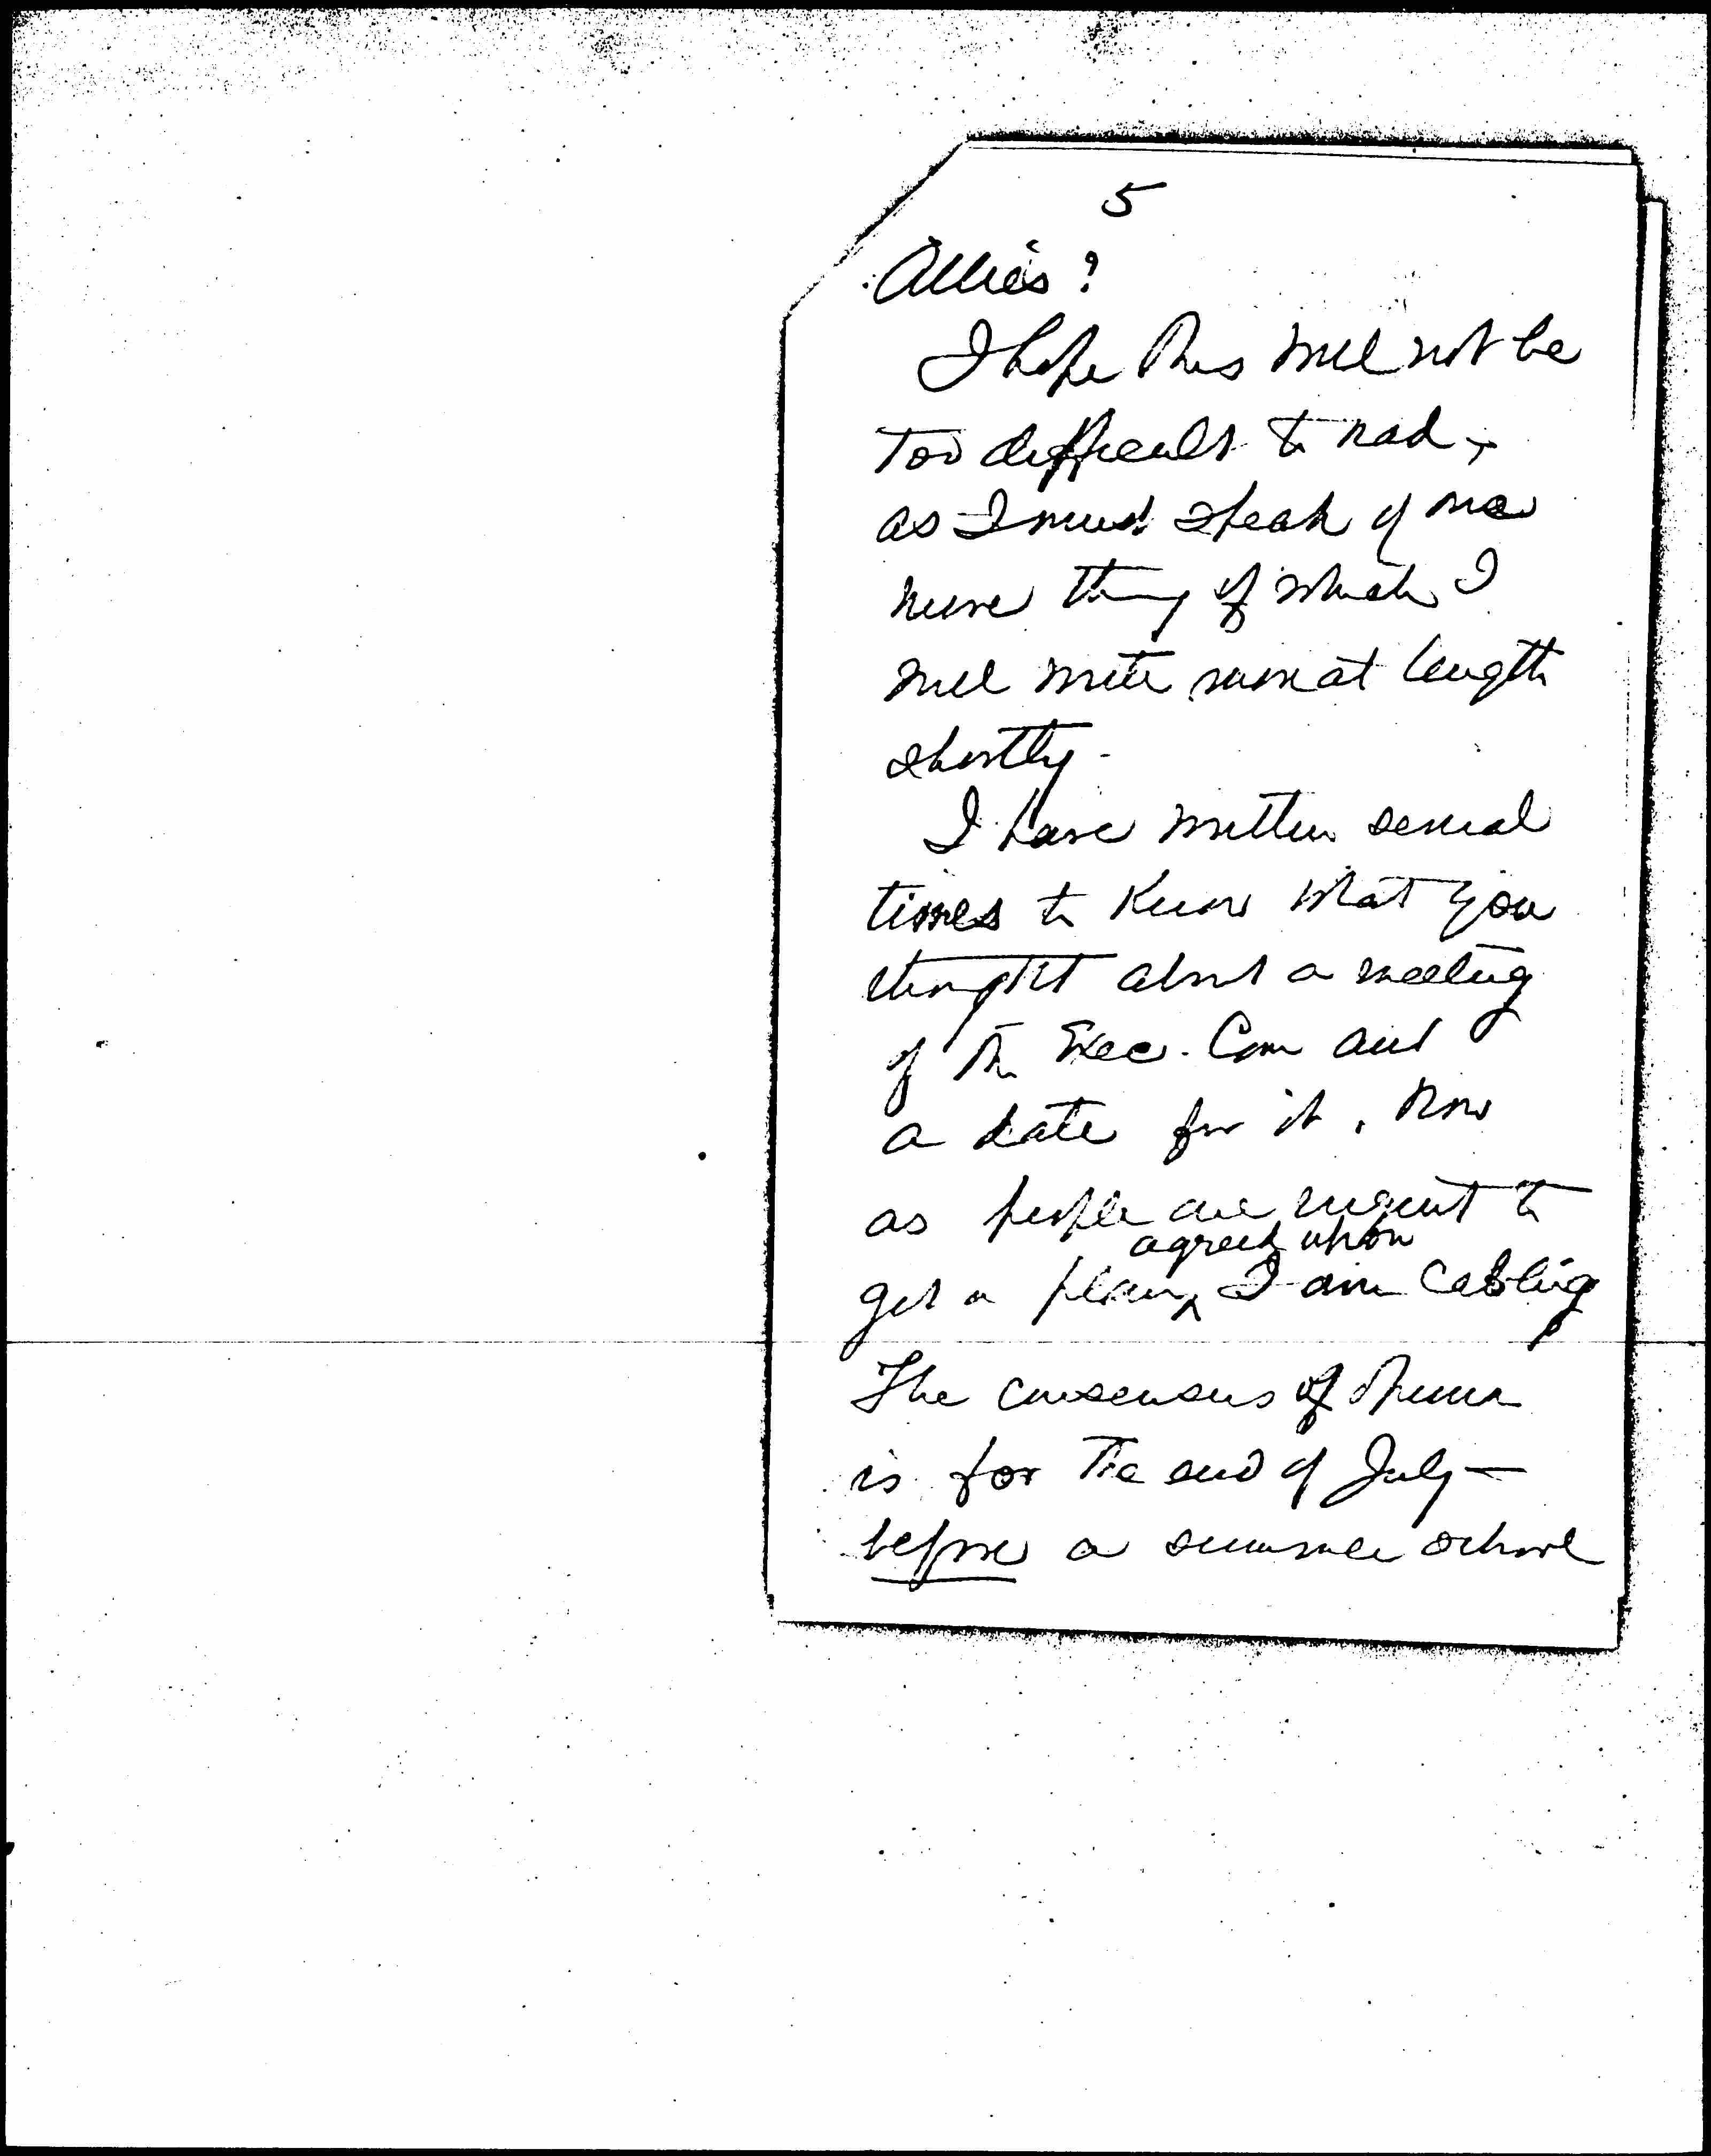 5
Allies?
I hope this will not be
too difficult to read,
as I must speak of one
more thing of which I
will write more at length
shortly.
I have written several
times to know what you
thought about a meeting
of the Exec. Com and
a date for it. Now
as people are urgent to
agreed upon
get a plan ^ I am cabling
The consensus of opinion
is for the end of July —
before a summer school